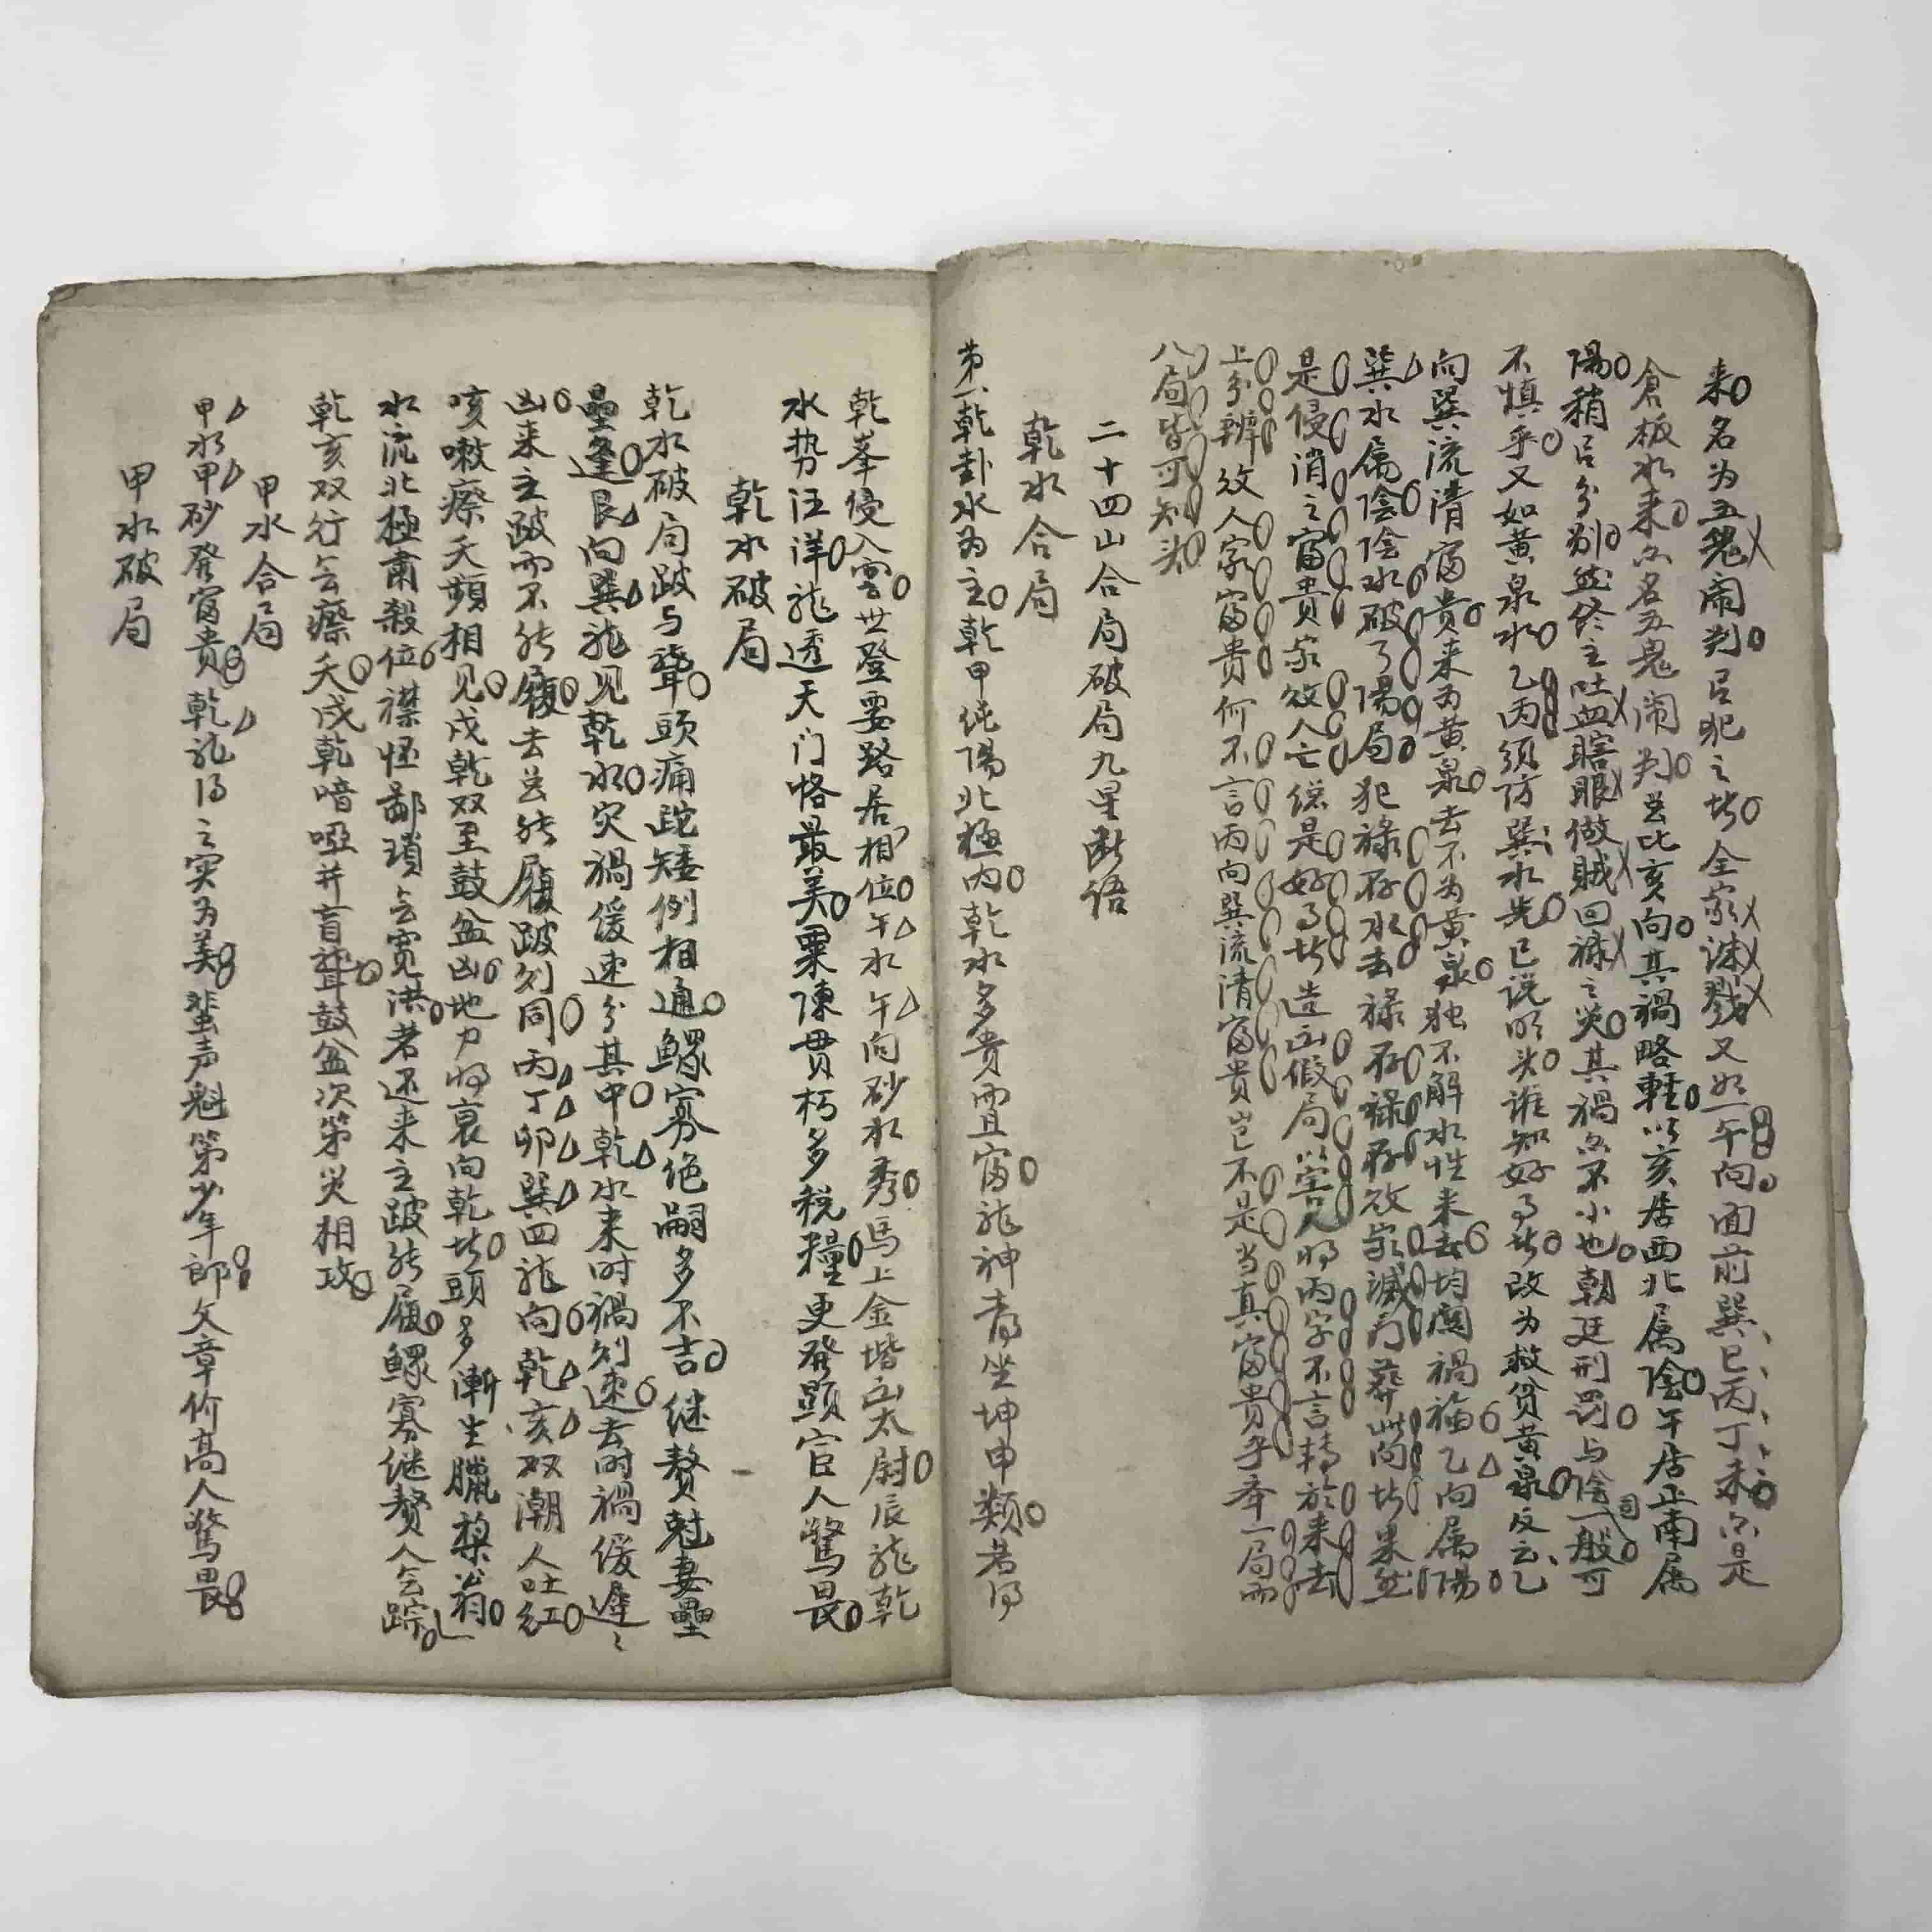 来名为五鬼闹判官犯之者全家诛戮又如午向面前巽巳丙丁未亦是
倉板水来亦名五鬼闹判官比亥向其禍略輕以亥居西北属陰午居正南属
陽稍吕分别然终主吐血瞎眼做贼回禄之災其禍亦不小也朝廷刑罚与陰司一般可
不慎乎又如黄泉水乙丙须防巽水先已说明头谁知好事者改为救贫黄泉反云乙
向巽流清富贵来为黄泉去不为黄泉独不解水性来去均関禍福乙向属陽
巽水属陰陰水破了陽局犯禄存水去禄存禄存败家滅门葬此向者果然
是侵消之富贵家败人亡總是好事者造出假局以害人将丙字不言轉於来去
上分辨效人家富贵何不言丙向巽流清富贵岂不是当真富贵乎举一局而
八局皆可知头
二十四山合局破局九星断语
乾水合局
第一乾卦水为主乾甲纯陽北極内乾水多贵而且富龍神青坐坤申類若得
乾峯侵入雲世登要路居相位午水午向砂水秀馬上金堦出太尉辰龍乾
水势汪洋龍透天门格最美粟陳贯朽多税糧更發顕宦人驚畏
乾水破局
乾水破局跛与聋頭痛跎矮例相通鳏寡绝嗣多不吉继赘尅妻壘
壘逢艮向巽龍见乾水灾禍缓速分其中乾水来时禍刘速去时禍缓遲〻
凶来主跛而不能履去岂能履跛刘同丙丁卯巽四龍向乾亥双潮人吐红
咳嗽瘵夭頻相见戌乾双至鼓盆凶地力将衰向乾者頭多漸生臘梨翁
水流北極肅殺位襟怪鄙琐亏宽洪者还来主跛能履鳏寡继赘人亏踪
乾亥双行亏瘵夭戌乾喑哑并盲聋鼓盆次第災相攻
甲水合局
甲水甲砂發富贵乾龍得之实为美蜚声魁第少年郎文章价高人驚畏
甲水破局